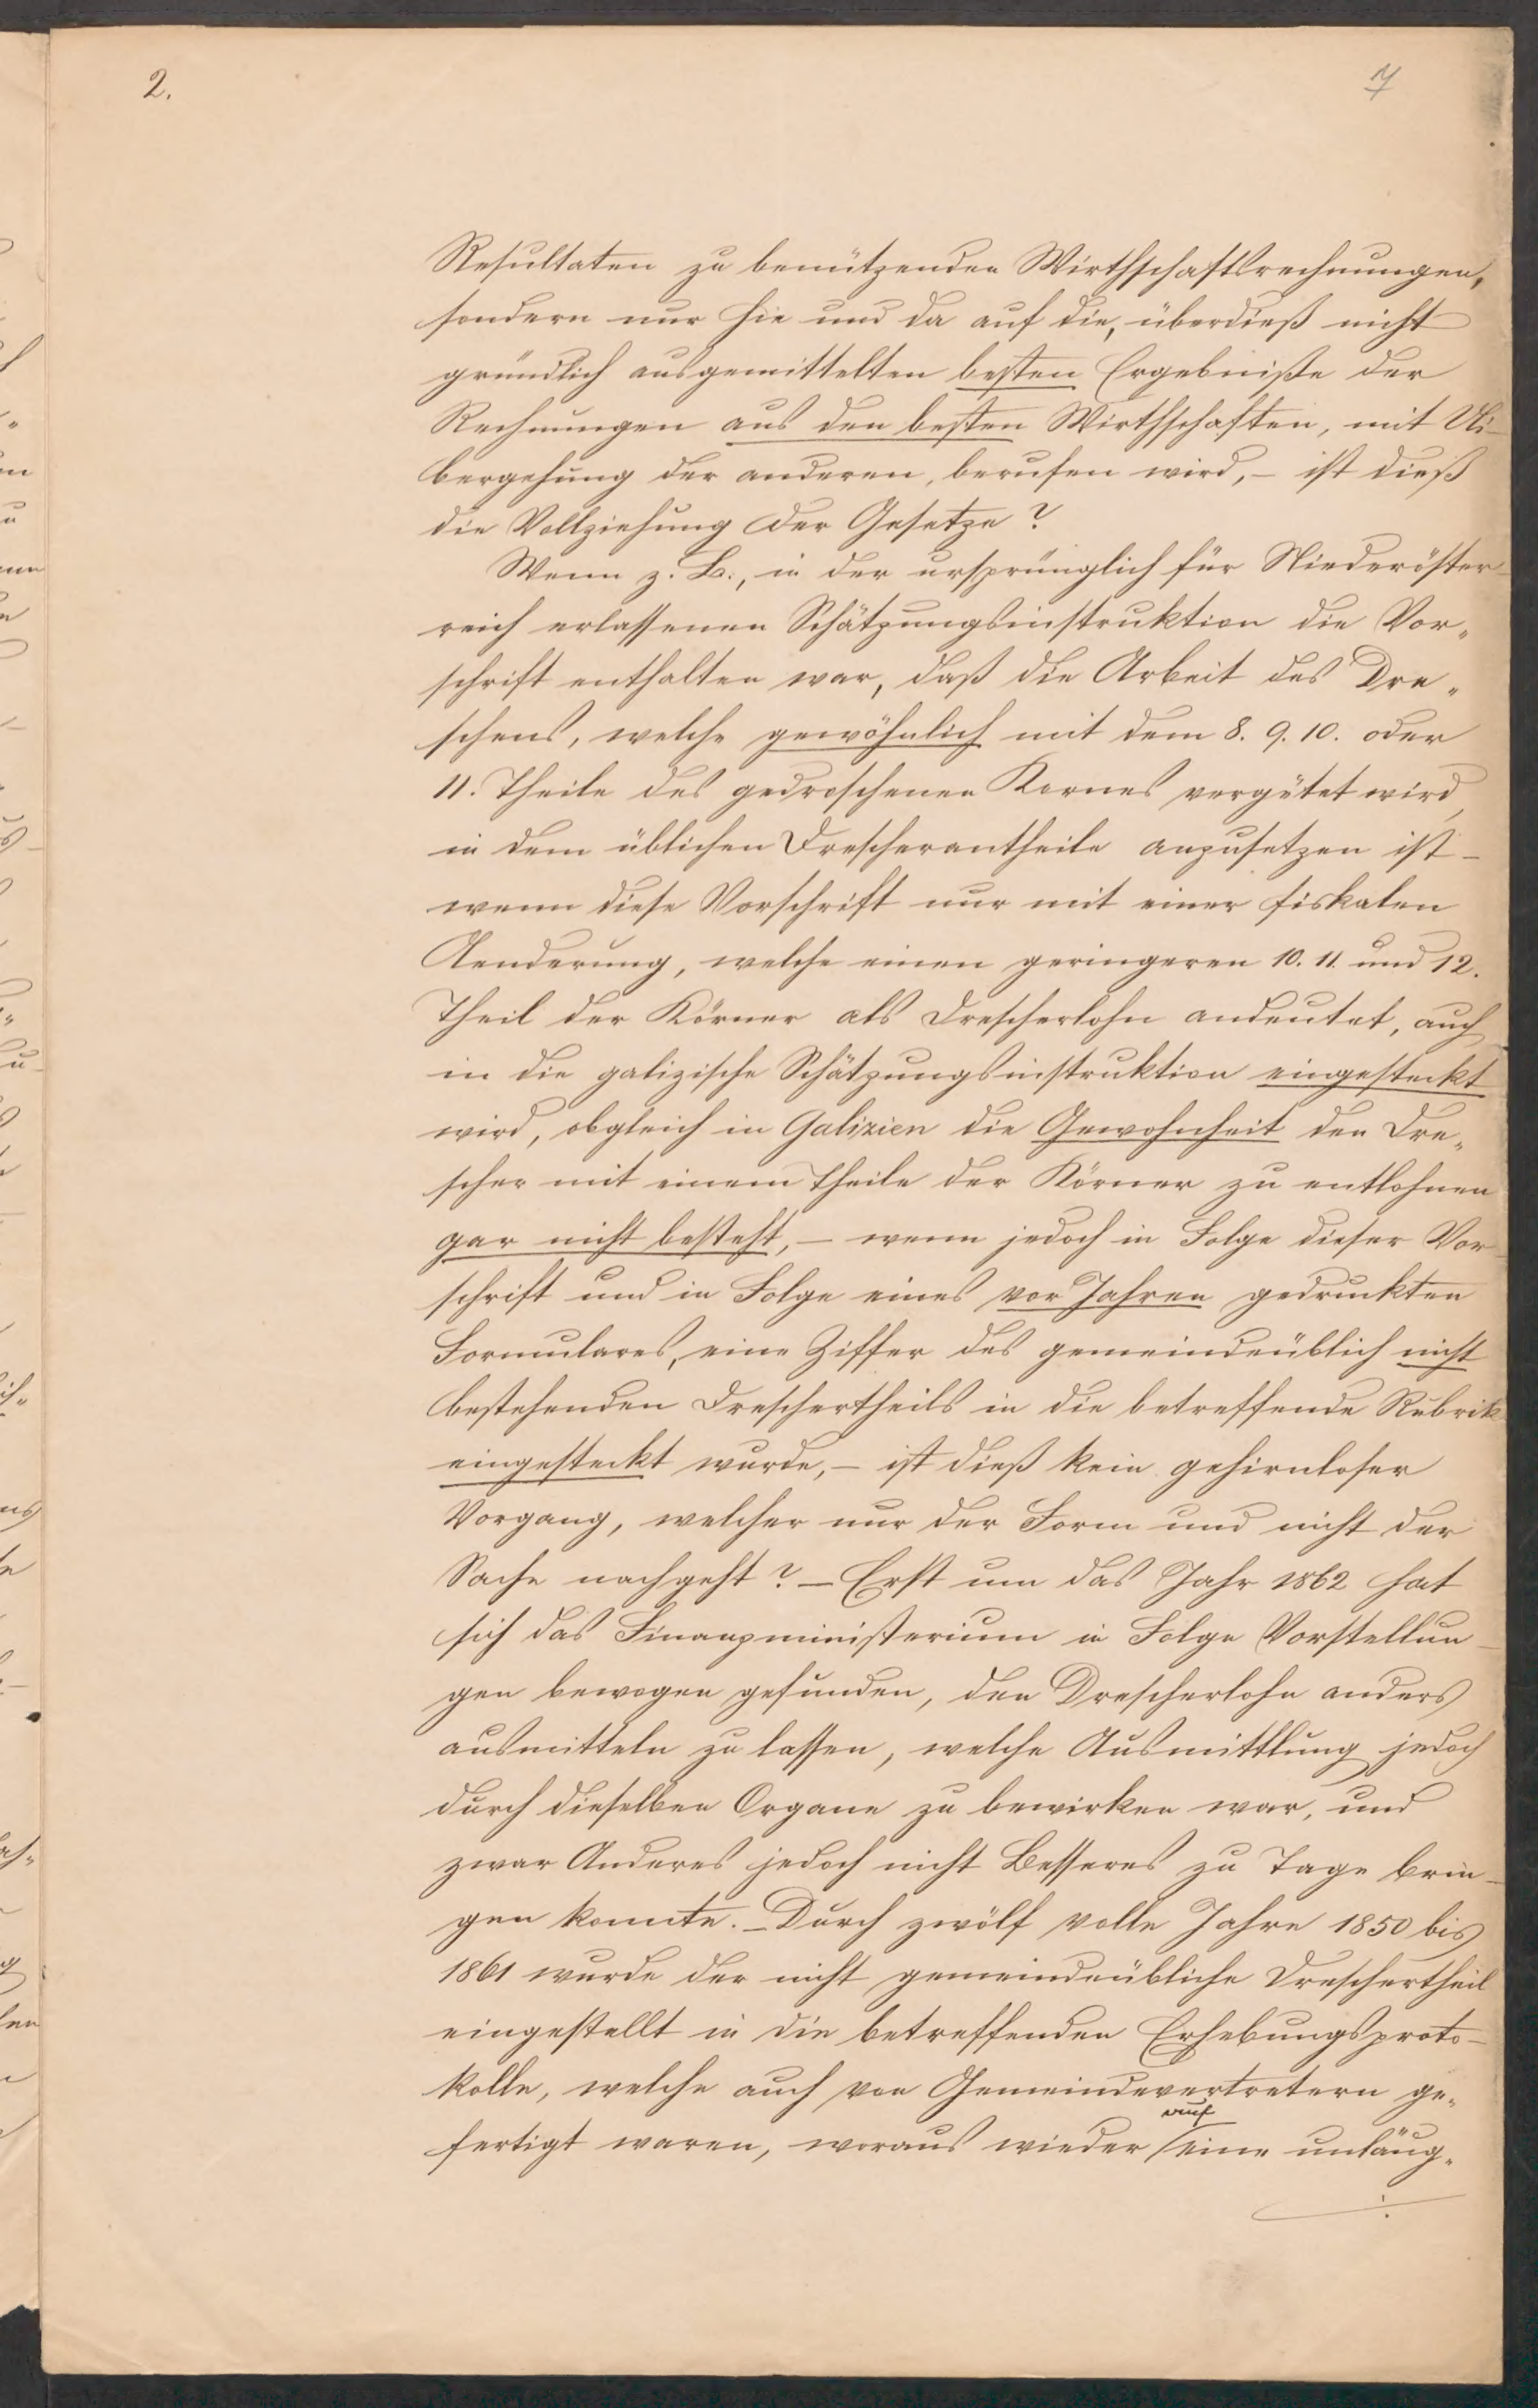 2.
7
Resultaten zu benützenden Wirthschaftsrechnungen,
sondern nur hie und da auf die, überdieß nicht
gründlich ausgemittelten besten Ergebniße der
Rechnungen aus den besten Wirthschaften, mit Ui-
bergehung der anderen, berufen wird, – ist dieß
die Vollziehung der Gesetze?
Wenn z. B., in der ursprünglich für Niederöster-
reich erlassenen Schätzungsinstruktion die Vor„
schrift enthalten war, daß die Arbeit des Dre„
schens, welche gewöhnlich mit dem 8. 9. 10. oder
11. Theile des gedroschenen Kornes vergütet wird,
in dem üblichen Drescherantheile anzusetzen ist –
wenn diese Vorschrift nur mit einer fiskalen
Aenderung, welche einen geringeren 10. 11. und 12.
Theil der Körner als Drescherlohn andeutet, auch
in die galizische Schätzungsinstruktion eingesteckt
wird, obgleich in Galizien die Gewohnheit den Dre„
scher mit einem Theile der Körner zu entlohnen
gar nicht besteht, – wenn jedoch in Folge dieser Vor-
schrift und in Folge eines vor Jahren gedruckten
Formulares, eine Ziffer des gemeindeüblich nicht
bestehenden Dreschertheils in die betreffende Rubrik
eingesteckt wurde, – ist dieß kein gehirnloser
Vorgang, welcher nur der Form und nicht der
Sache nachgeht? – Erst um das Jahr 1862 hat
sich das Finanzministerium in Folge Vorstellun-
gen bewogen gefunden, den Drescherlohn anders
ausmitteln zu lassen, welche Ausmittlung jedoch
durch dieselben Organe zu bewirken war, und
zwar Anderes jedoch nicht Besseres zu Tage brin-
gen konnte. – Durch zwölf volle Jahre 1850 bis
1861 wurde der nicht gemeindeübliche Dreschertheil
eingestellt in die betreffenden Erhebungsproto-
kolle, welche auch von Gemeindevertretern ge„
fertigt waren, woraus wieder auf eine unläug„